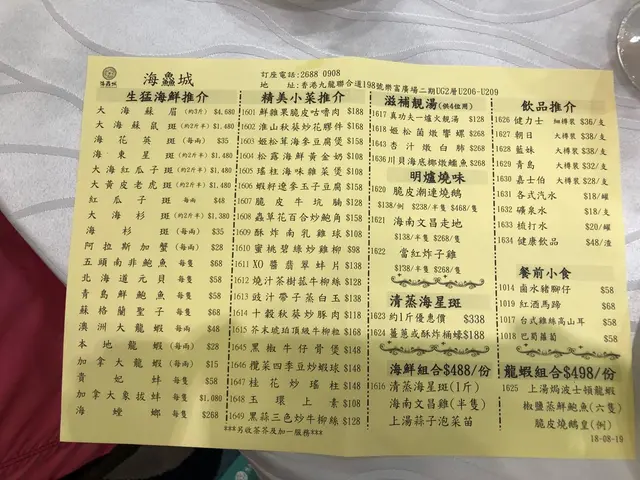 海鱻城
訂座電話:2688 0908
地 址:香港九龍聯合道198號樂富廣場二期UG2層U206-U209
生猛海鮮推介
大海蘇眉 (約3斤) $4,680
大海蘇鼠斑 (約2斤半) $1,480
海花英斑 (每両) $35
海東星斑 (約2斤半) $1,480
大海紅瓜子斑 (約2斤半) $1,480
大黃皮老虎斑 (約2斤半) $1,480
紅瓜子斑 每両 $48
大海杉斑 (約2斤半) $1,380
海杉斑 (每両) $35
阿拉斯加蟹 (每両) $28
五頭南非鮑魚 每隻 $68
北海道元貝 每隻 $58
青島鮮鮑魚 每隻 $58
蘇格蘭聖子 每隻 $68
澳洲大龍蝦 每両 $48
本地龍蝦 (每両) $28
加拿大龍蝦 (每両) $15
貴妃蚌 每隻 $58
加拿大象拔蚌 每隻 $1,080
海螳螂 每隻 $268
精美小菜推介
1601 鮮雜果脆皮咕嚕肉 $188
1602 淮山秋葵炒花膠件 $168
1603 姬松茸海參豆腐煲 $158
1604 松露海鮮黃金奶 $108
1605 瑤柱海味雜菜煲 $108
1606 蝦籽遼參玉子豆腐 $158
1607 脆皮牛坑腩 $128
1608 蟲草花百合炒鮑角 $158
1609 酥炸南乳雞球 $108
1610 蜜桃碧綠炒雞柳 $98
1611 XO醬翡翠蚌片 $138
1612 燒汁茶樹菰牛柳絲 $128
1613 豉汁帶子蒸白玉 $138
1614 十穀秋葵炒豚肉 $118
1615 芥末琥珀頂級牛柳粒 $168
1645 黑椒牛仔骨煲 $148
1646 欖菜四季豆炒蝦球 $148
1647 桂花炒瑤柱 $148
1648 玉環上素 $108
1649 黑蒜三色炒牛柳絲 $128
***另收茶芥及加一服務***
滋補靚湯(供4位用)
1617 真功夫一爐火靚湯 $128
1618 姬松菌燉響螺 $268
1643 杏汁燉白肺 $268
1636 川貝海底椰燉鱷魚 $268
明爐燒味
1620 脆皮潮連燒鵝
$138/例 $238/半隻 $468/隻
1621 海南文昌走地
$138/半隻 $268/隻
1622 當紅炸子雞
$138/半隻 $268/隻
清蒸海星斑
1623 約1斤優惠價 $338
1624 薑蔥或酥炸桶蠔 $188
海鮮組合$488/份
1616 清蒸海星斑(1斤)
海南文昌雞(半隻)
上湯蒜子泡菜苗
飲品推介
1626 健力士 細樽裝 $36/支
1627 朝日 大樽裝 $38/支
1628 藍妹 大樽裝 $38/支
1629 青島 大樽裝 $32/支
1630 嘉士伯 大樽裝 $28/支
1631 各式汽水 $18/罐
1632 礦泉水 $18/支
1633 梳打水 $20/罐
1634 健康飲品 $48/渣
餐前小食
1014 鹵水豬腳仔 $58
1019 紅酒馬蹄 $68
1017 台式雞絲高山耳 $58
1018 巴蜀蘿蔔 $58
龍蝦組合$498/份
1625 上湯焗波士頓龍蝦
椒鹽蒸鮮鮑魚(六隻)
脆皮燒鵝皇(例)
18-08-19